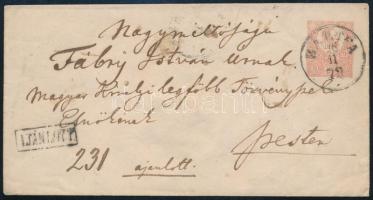 Nagyméltóságú
Fábry István Urnak
Magyar Királyi legfőbb Törvényszéki
Elnökének
Pesten
231 ajánlott.
AJÁNLOTT
BARTFA
11
72